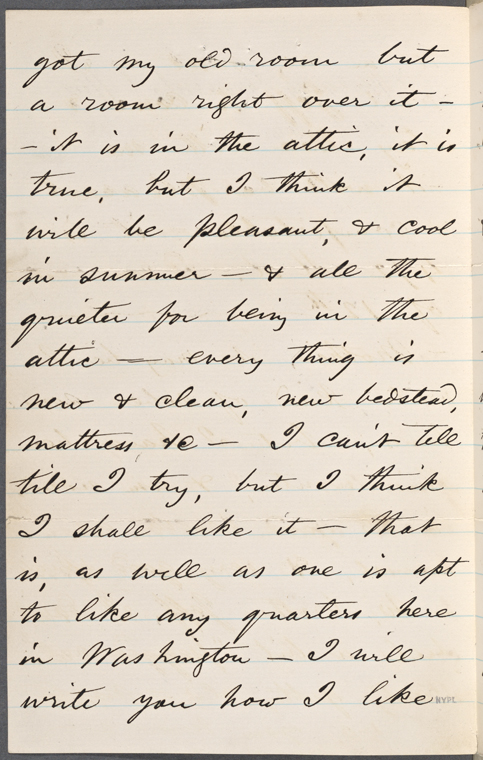 got my old room but
a room right over it –
– it is in the attic, it is
true, but I think it
will be pleasant, & cool
in summer – & all the
quieter for being in the
attic — every thing is
new & clean, new bedstead,
mattress, &c – I can't tell
till I try, but I think
I shall like it – that
is, as well as one is apt
to like any quarters here
in Washington – I will
write you how I like
NYPL